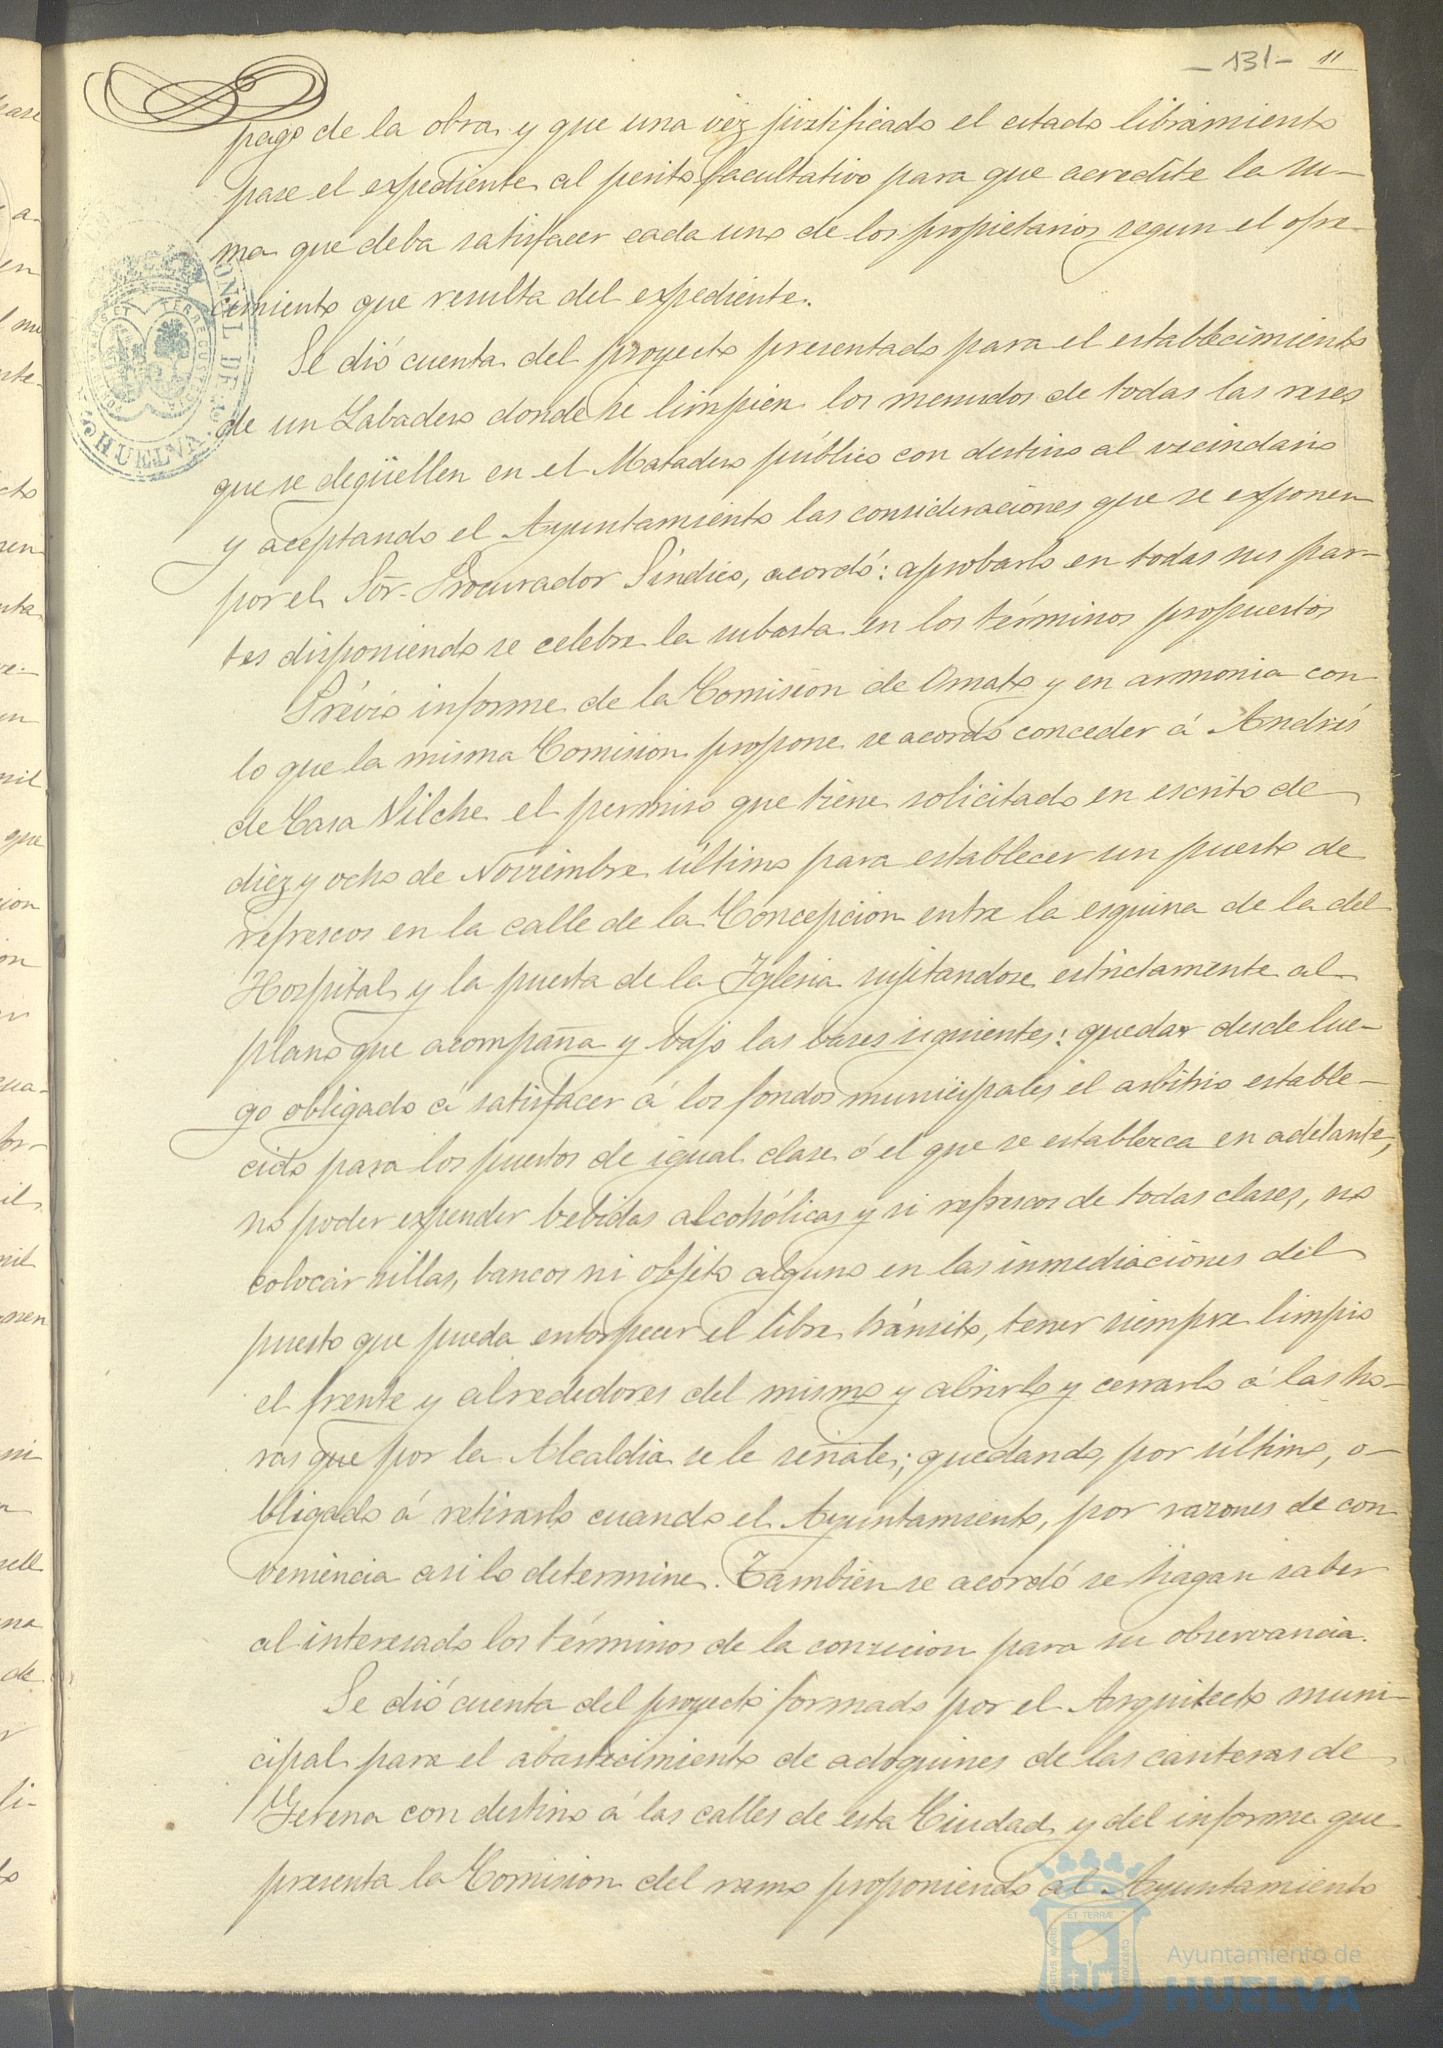 - 131 - 11
pago de la obra y que una vez justificado el citado libramiento
pase el expediente al perito facultativo para que acredite la su-
ma que deba satisfacer cada uno de los propietarios segun el ofre-
cimiento que resulta del expediente.
Se dió cuenta del proyecto presentado para el establecimiento
de un Labadero donde se limpien los menudos de todas las reses
que se degüellen en el Matadero público con destino al vecindario
y aceptando el Ayuntamiento las consideraciones que se exponen
por el Sõr. Procurador Síndico, acordó: aprobarlo en todas sus par-
tes disponiendo se celebre la subasta en los términos propuestos
Prévio informe de la Comisión de Ornato y en armonia con
lo que la misma Comision propone se acordó conceder á Andrés
de Casa Vilche el permiso que tiene solicitado en escrito de
diez y ocho de Noviembre último para establecer un puesto de
refrescos en la calle de la Concepción entre la esquina de la del
Hospital y la puerta de la Iglesia sujetandose estrictamente al
plano que acompaña y bajo las bases siguientes: quedar desde lue-
go obligado á satisfacer á los fondos municipales el arbitrio estable-
cido para los puestos de igual clase ó el que se establezca en adelante,
no poder expender bebidas alcohólicas y si refrescos de todas clases, no
colocar sillas, bancos ni objeto alguno en las inmediaciones del
puesto que pueda entorpecer el libre tránsito, tener siempre limpio
el frente y alrededores del mismo y abrirlo y cerrarlo á las ho-
ras que por la Alcaldia se le señale; quedando, por último, o-
bligado á retirarlo cuando el Ayuntamiento, por razones de con-
veniencia asi lo determine. Tambien se acordó se hagan saber
al interesado los términos de la concesion para su observancia.
Se dió cuenta del proyecto formado por el Arquitecto muni-
cipal para el abastecimiento de adoquines de las canteras de
Gerena con destino á las calles de esta Ciudad y del informe que
presenta la Comision del ramo proponiendo al Ayuntamiento
HUELVA
Ayuntamiento de
HUELVA